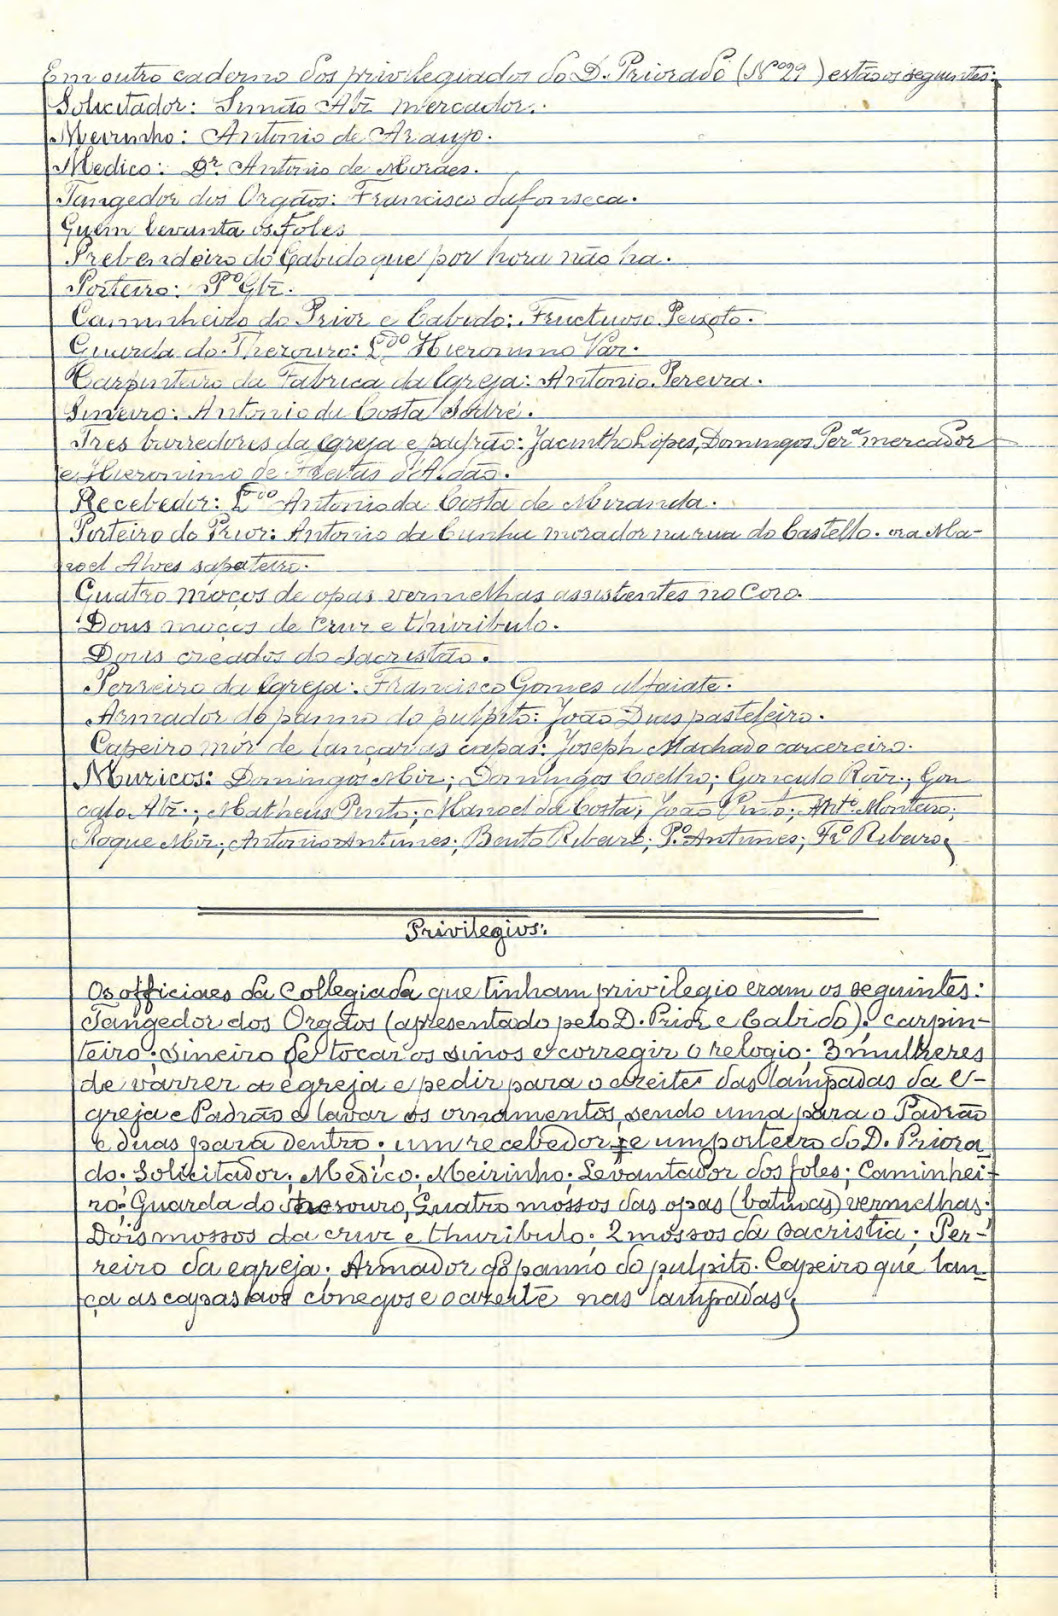 Em outro caderno dos privilegiados do D. Priorado (Nº 29) estão os seguintes:
Solicitador: Simão Alz̃ mercador.
Meirinho: Antonio de Araujo.
Medico: Dr. Antonio de Moraes.
Tangedor dos Orgãos: Francisco da fonseca.
Quem levanta os Foles
Prebendeiro do Cabido que por hora não ha.
Porteiro: Pº Glz̃.
Caminheiro do Prior e Cabido: Fructuoso Peixoto.
Guarda do Thezouro: Ldo Hieronimo Vaz.
Carpinteiro da Fabrica da Igreja: Antonio Pereira.
Sineiro: Antonio da Costa Sodré.
Tres barredores da Igreja e padrão: Jacintho Lopes, Domingos Perª mercador
e Hieronimo de Freitas d'Aldão.
Recebedor: Ldo Antonio da Costa de Miranda.
Porteiro do Prior: Antonio da Cunha morador na rua do Castello. ora Ma-
noel Alves sapateiro.
Quatro moços de opas vermelhas assistentes no Coro.
Dous moços de cruz e thuribulo.
Dous creados do Sacristão.
Perreiro da Igreja: Francisco Gomes alfaiate.
Armador do panno do pulpito: João Dias pasteleiro.
Capeiro mór de lançar as capas: Joseph Machado carcereiro.
Muzicos: Domingos Miz̃; Domingos Coelho; Gonçalo Roiz̃; Gon
çalo Alz̃.; Matheus Pinto; Manoel da Costa; João Pinto; Antº Monteiro;
Roque Miz̃; Antonio Antunes; Bento Ribeiro; Pº Antunes; Frº Ribeiro
Privilegios:
Os officiaes da Collegiada que tinham privilegio eram os seguintes:
Tangedor dos Orgãos (apresentado pelo D. Prior e Cabido): carpin-
teiro; sineiro de tocar os sinos e corregir o relogio; 3 mulheres
de varrer a egreja e pedir para o azeite das lampadas da e-
greja e Padrão e lavar os ornamentos, sendo uma para o Padrão
e duas para dentro; um recebedor e um porteiro do D. Priora
do. Solicitador; Medico; Meirinho; Levantador dos foles; Caminhei-
ro; Guarda do thesouro, Quatro mossos das opas (batinas) vermelhas;
Dois mossos da cruz e thuribulo; 2 mossos da sacristia; Per-
reiro da egreja; Armador do panno do pulpito. Capeiro que lan-
ça as capas aos conegos e o azeite nas lampadas